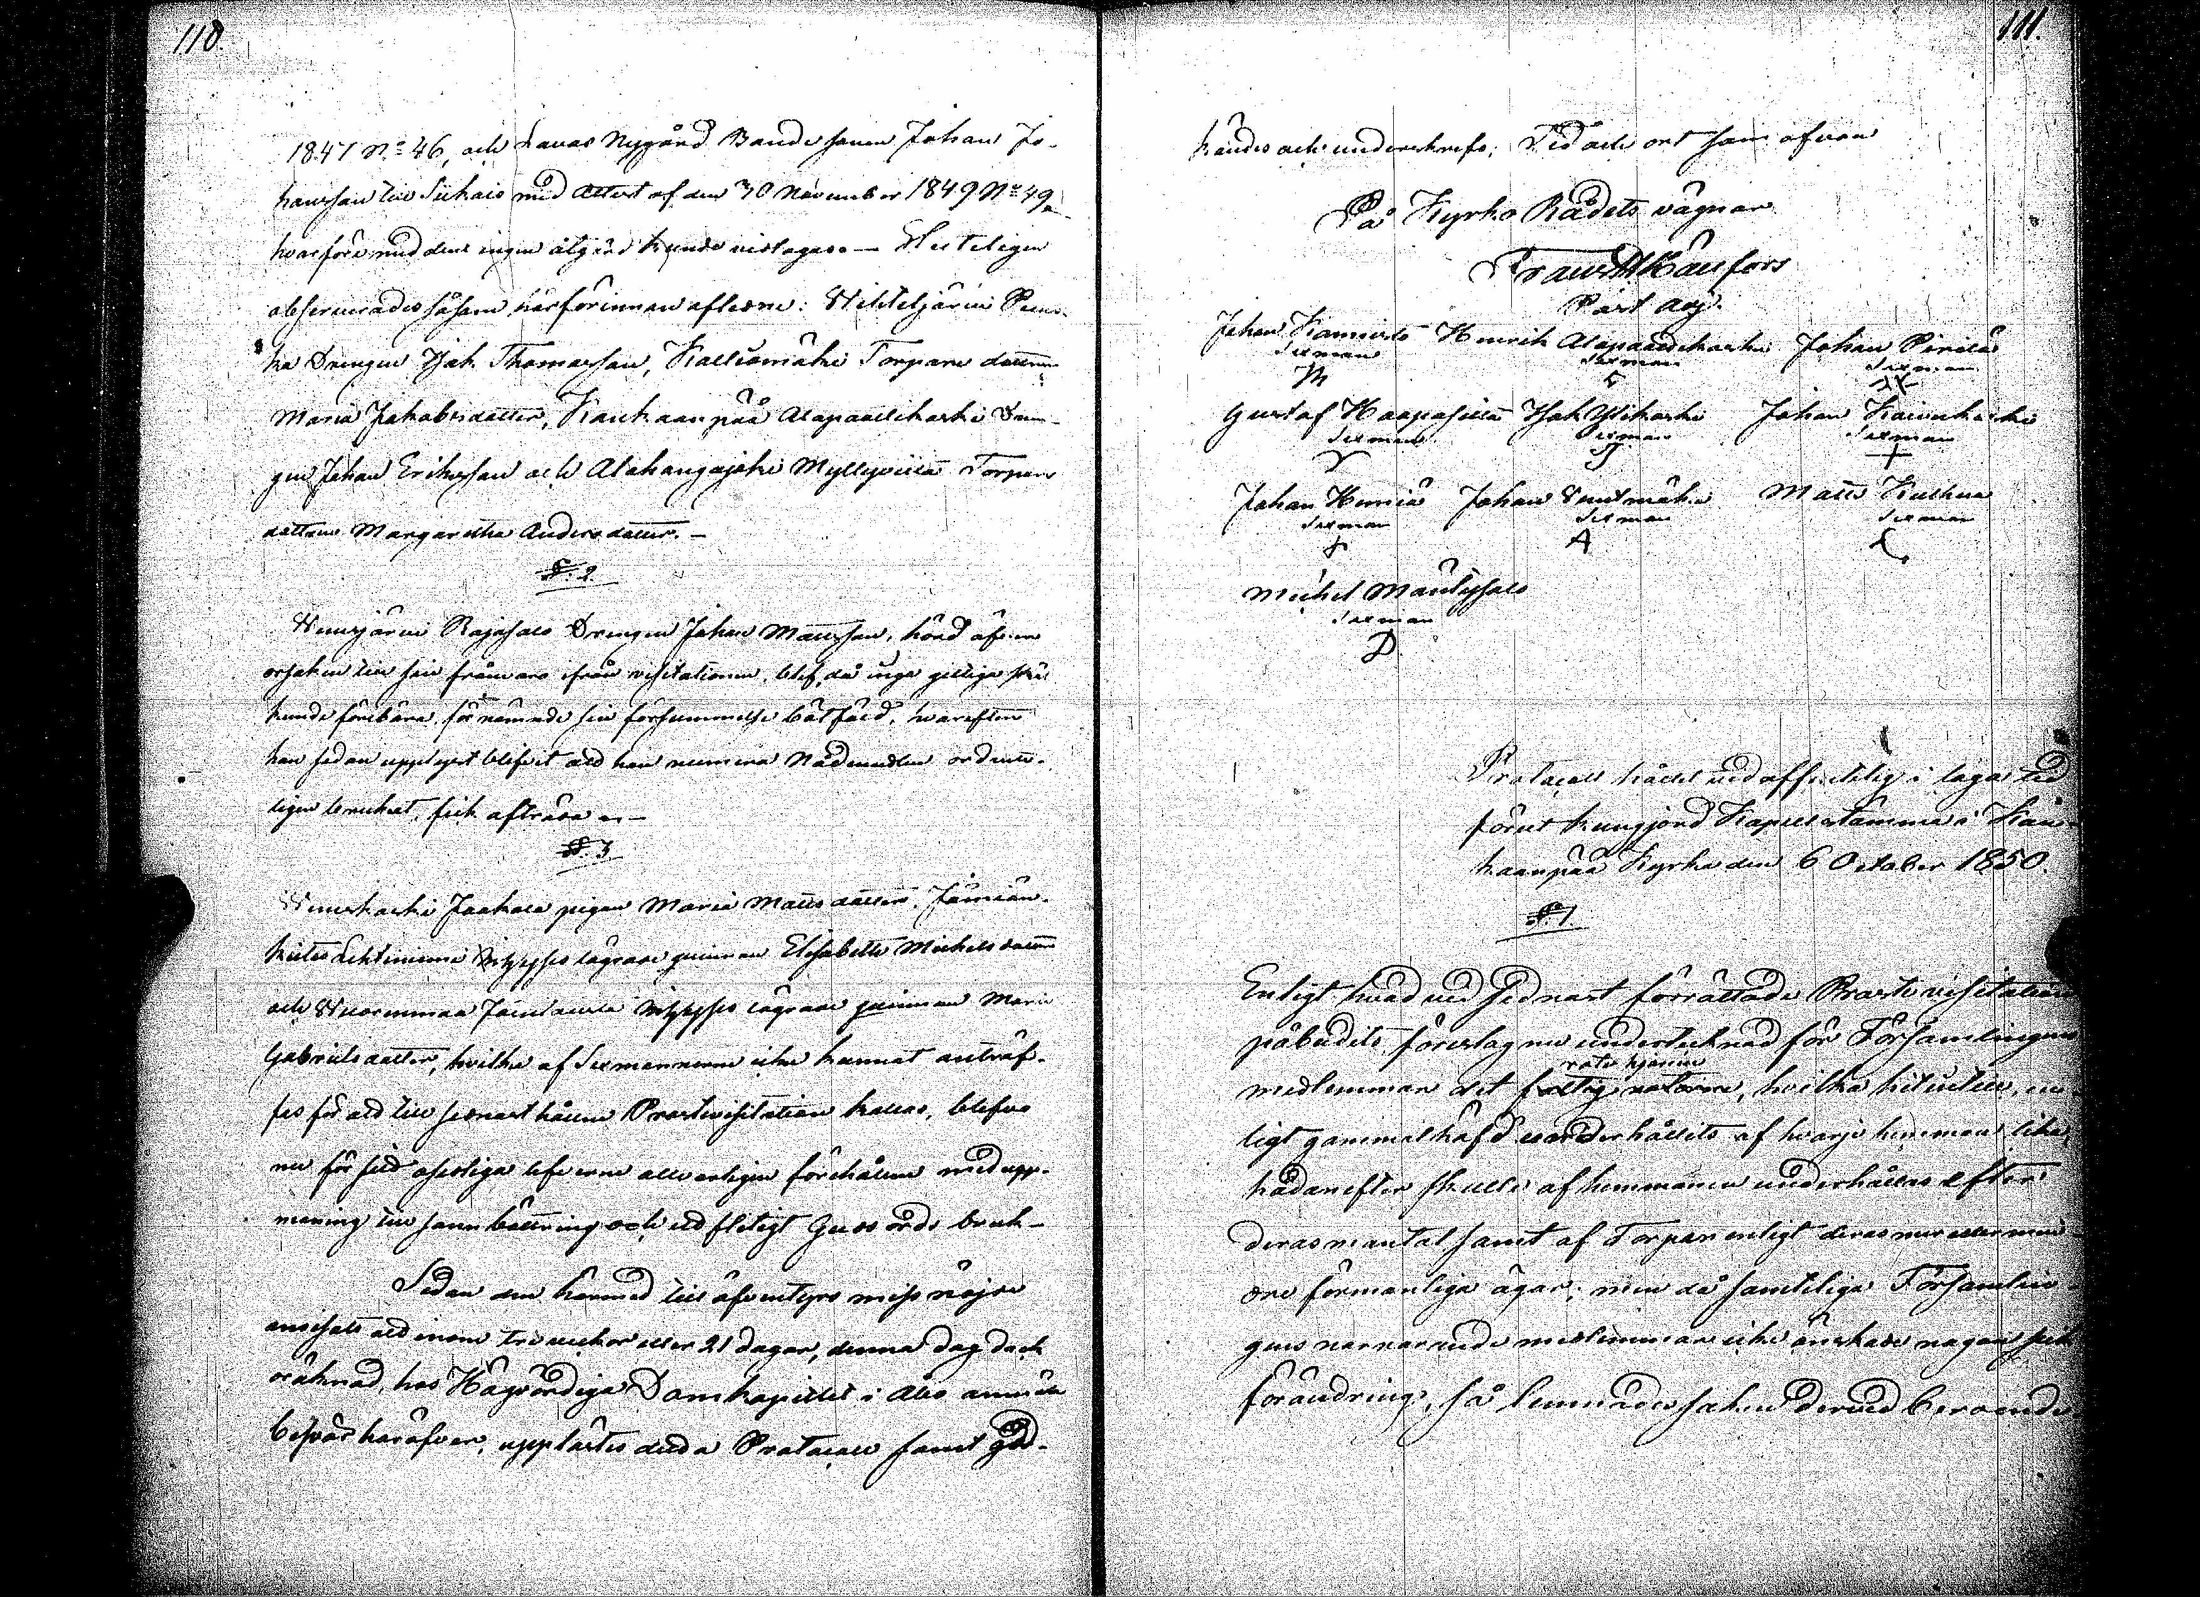 110.
1847 N:o 46, och Lavas Nygård Bondesonen Johan Jo-
hansson till Siikais med attest af den 30 November 1849 N:o 49,
hvarföre med dem ingen åtgärd kunde vidtagas. — Sluteligen
observerades såsom härförinnan aflidne:
ka Drengen Isak Thomasson, Kalliomäki Torpare dottren
Maria Jakobsdotter, Kankaanpää Alapaasikoski Dren-
gen Johan Eriksson och Alahongajoki Myllyviita Torpare
dottren Margaretha Andersdotter. —
§. 2.
Venesjärvi Rajasalo Drengen Johan Mattsson, hörd öfver
orsaken till sin frånvaro ifrån visitationen, blef, då inga giltiga skäl
kunde förebära, för nämnde sin försummelse bötfäld, hvarefter
han sedan upplyst blifvit att han numera Nådmedlen ordent-
ligen brukat, fick afträda. —
§. 3.
Veneskoski Jaakola pigan Maria Mattsdotter, Jämiän-
keitos Lehtiniemi inhyses lägrade qvinnan Elisabeth Michelsdotter
och inhyses lägrade qvinnan Maria
Gabrielsdotter, hvilka af Sexmännerne icke kunnat anträf-
fas för att till sednast hållne Prostvisitation kallas, blefvo
nu för sitt osedliga lefverne allvarligen förehållne med upp-
maning till sann bättring och ett flitigt Guds ords bruk —
Sedan den härmed till äfventyrs missnöjde
anvisats att inom tre veckor eller 21 dagar, denna dag dock
oräknad, hos Högvördiga Domkapitlet i Åbo anmäla
besvär häröfver, upplästes detta Protocoll samt god-
111.
kändes och underskrefs; Tid och ort som ofvan
På Kyrko Rådets vägnar
Frans M Känfors
Past adj.
Johan Kannisto Henrik Alapaasikoski Johan Pirilä
Sexman Sexman Sexman
Gustaf Haapasilta Isak Ylikoski Johan Koivukoski
Sexman Sexman Sexman
Johan Knuutmäki Matts Kuhna
Sexman Sexman Sexman
Michel Mäntysalo
Sexman
Protocoll hållet vid offentlig i laga tid
förut kungjord Kapellstämma i Kan-
kaanpää Kyrka den 6 October 1850.
§. 1
Enligt hvad vid sednast förrättade Prostevisitation
påbudits, föreslog nu undertecknad för Församlingens
medlemmar det, hvilka hittills, en-
ligt gammal häfd underhållits af hvarje hemman lika,
hädanefter skulle af hemmanen underhållas efter
deras mantal samt af Torpen enligt deras mer eller min-
dre förmånliga ägor; men då samtelige Församlin-
gens närvarande medlemmar icke önskade någon
förändring, så lemnades saken dervid beroende.